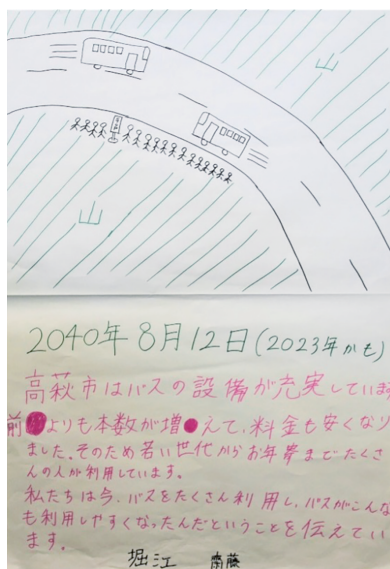 山
山
2040年8月12日(2023年かも)
高萩市はバスの設備が充実しています
前よりも本数が増えて、料金も安くなり
ました。そのため若い世代からお年寄まで たくさ
んの人が利用しています。
私たちは今、バスをたくさん利用し、バスがこんな
も利用しやすくなったんだということを伝えてい
ます。
堀江 齋藤